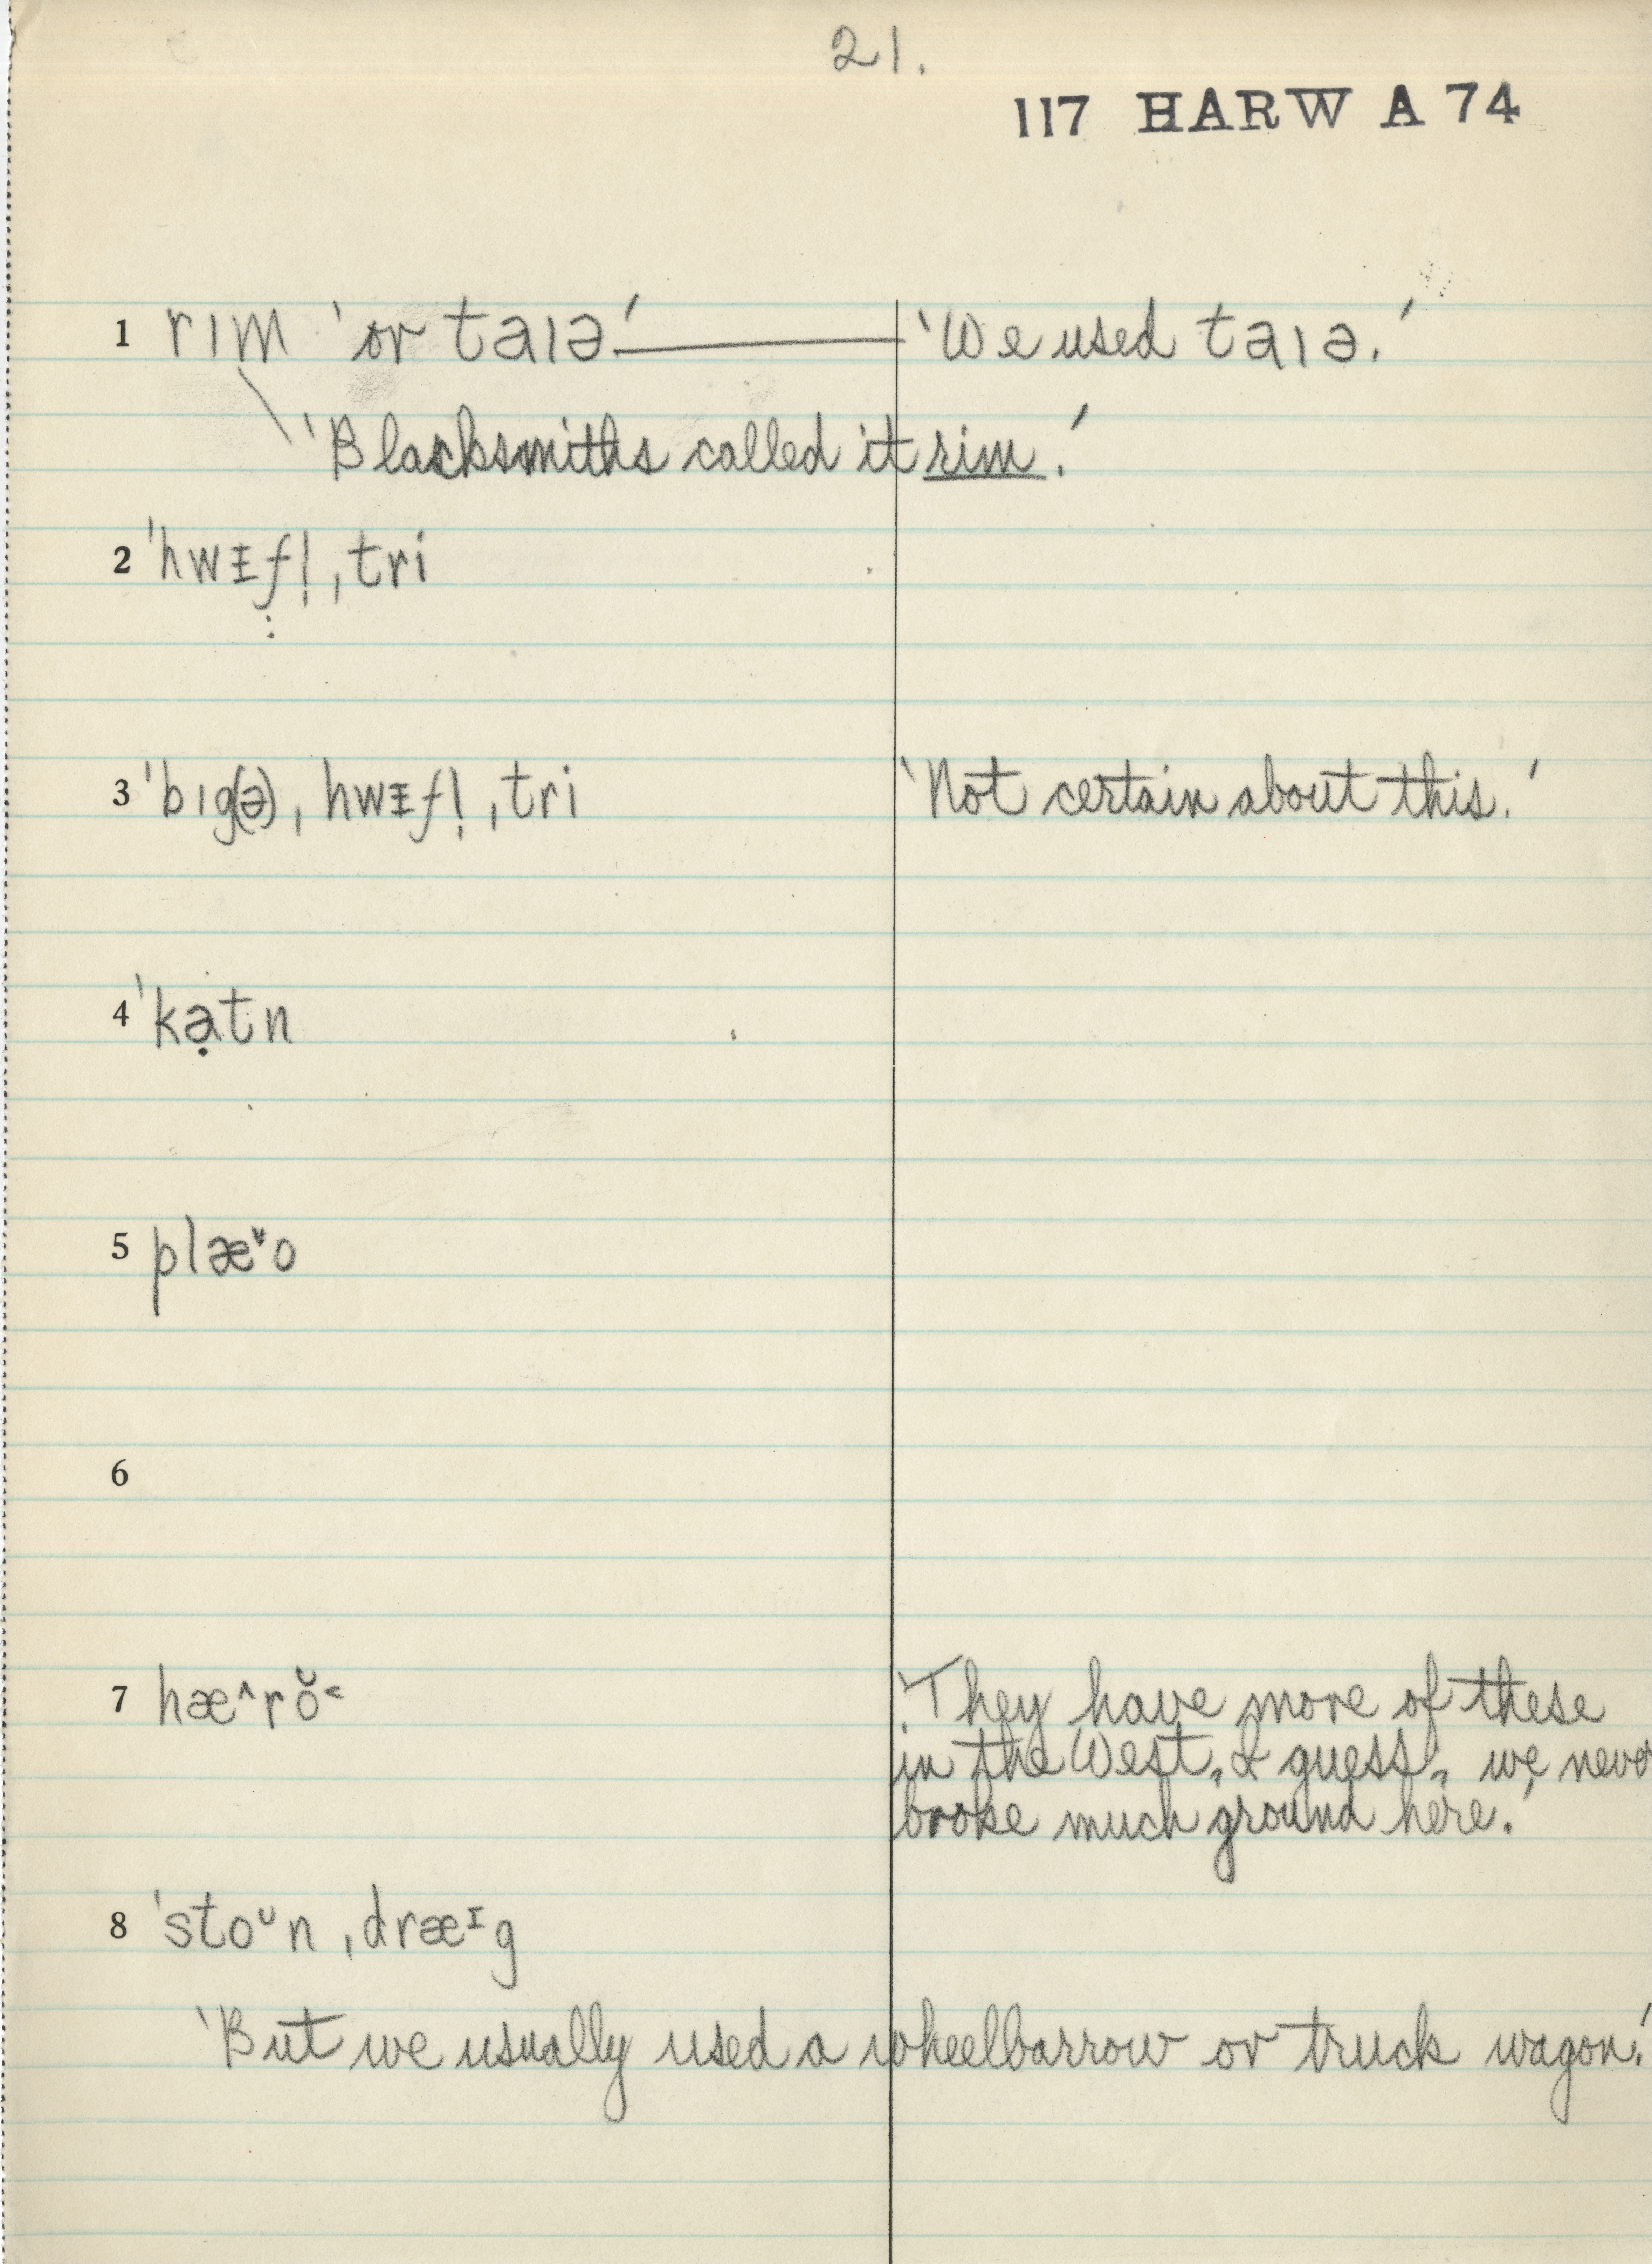 21.
117 HARW A 74
1 rɪm ‘or taɪə’ ‘We used taɪə.’
‘Blacksmiths called it rim.’
2 ˈhwᵻfl̩ˌtri
3 ˈbɪg(ə)ˌhwᵻfl̩ˌtri ‘Not certain about this.’
4 ˈkạtn
5 plæ˅o
6
7 hæ^rŏ˂ ‘They have more of these
in the West, I guess, we never
broke much ground here.’
8 ˈstoᵕnˌdræᶦg
‘But we usually used a wheelbarrow or truck wagon.’